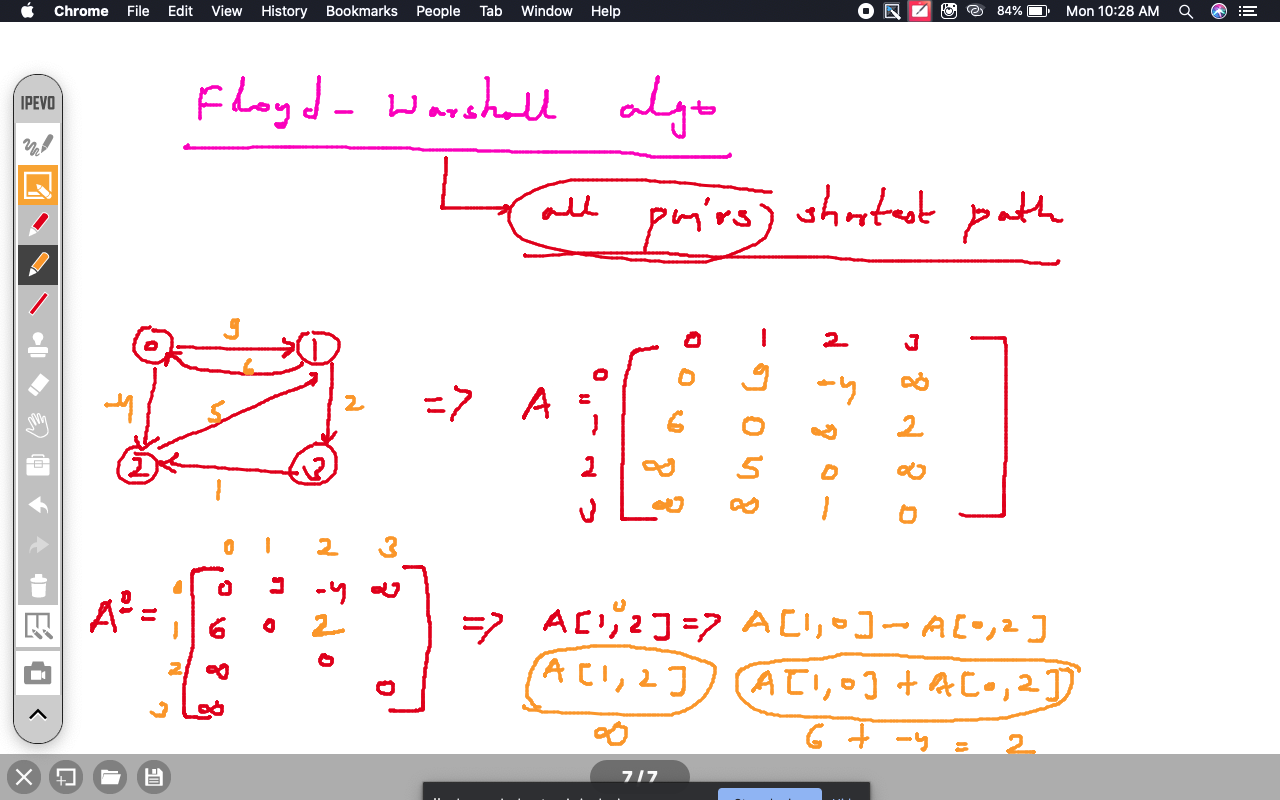 Chrome File Edit View History Bookmarks People Tab Window Help 84% Mon 10:28 AM
IPEVO
Floyd-Warshall algo
all pairs shortest path
0 9 1
6
-4 5 2
2 3
1
=> A =
0 1 2 3
0 0 9 -4 ∞
1 6 0 ∞ 2
2 ∞ 5 0 ∞
3 ∞ ∞ 1 0
0 1 2 3
0 0 9 -4 ∞
A⁰ = 1 6 0 2 => A[1,2] => A[1,0] - A[0,2]
0
2 ∞ 0 A[1,2] A[1,0] + A[0,2]
0
3 ∞
∞ 6 + -4 = 2
7/7